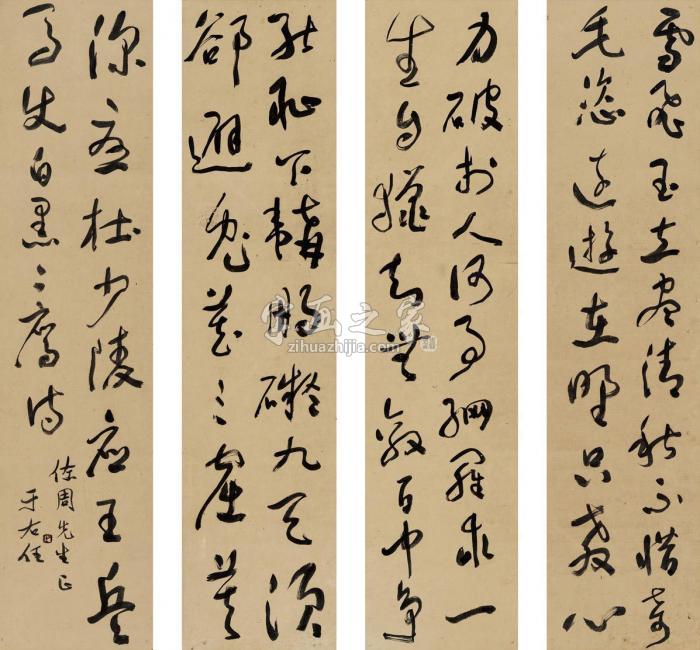 雪飛玉立盡清秋不惜奇
毛恣遠遊在野只教心
力破於人何事網羅求一
生自獵知無敵百中爭
能恥下鞲鵬礙九天須
郤避兔藏三窟莫
深憂杜少陵應王兵
馬使白黑二鷹詩
佐周先生正
于右任
字画之家
zihuazhijia.com